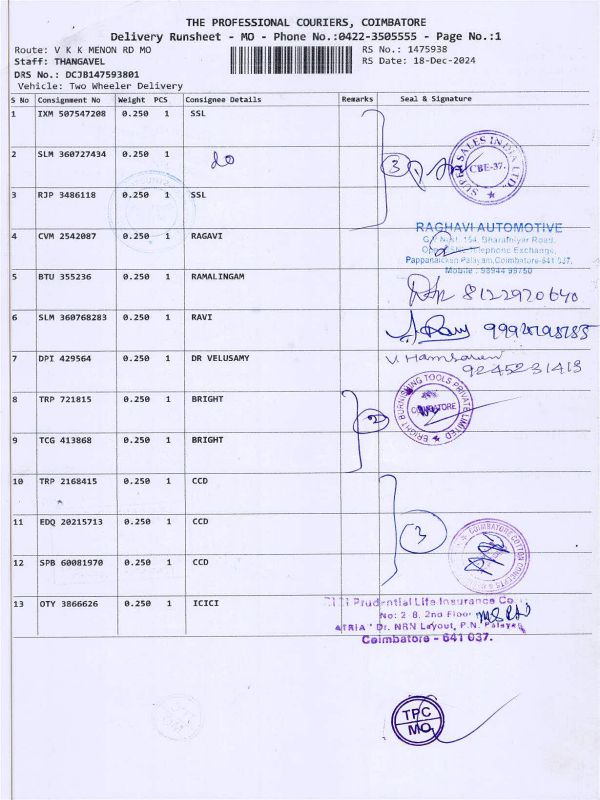 THE PROFESSIONAL COURIERS, COIMBATORE
Delivery Runsheet - MO - Phone No.:0422-3505555 - Page No.:1
Route: V K K MENON RD MO RS No.: 1475938
Staff: THANGAVEL RS Date: 18-Dec-2024
DRS No.: DCJB147593801
Vehicle: Two Wheeler Delivery
S No Consignment No Weight PCS Consignee Details Remarks Seal & Signature
1 IXM 507547208 0.250 1 SSL
2 SLM 360727434 0.250 1 do 3
SUPER SALES INDIA LTD CBE-37.
3 RJP 3486118 0.250 1 SSL
4 CVM 2542087 0.250 1 RAGAVI
RAGHAVI AUTOMOTIVE
154, Bharathiyar Road,
Telephone Exchange,
Pappanaicken Palayam, Coimbatore-641 037.
Mobile : 98944 99750
5 BTU 355236 0.250 1 RAMALINGAM 8122920640
6 SLM 360768283 0.250 1 RAVI
7 DPI 429564 0.250 1 DR VELUSAMY
9245231413
8 TRP 721815 0.250 1 BRIGHT 2
BRIGHT BURNISHING TOOLS PRIVATE LIMITED COIMBATORE
9 TCG 413868 0.250 1 BRIGHT
10 TRP 2168415 0.250 1 CCD
11 EDQ 20215713 0.250 1 CCD 3
COIMBATORE COTTON CONCEPTS
12 SPB 60081970 0.250 1 CCD
13 OTY 3866626 0.250 1 ICICI
Prudential Life Insurance Co
No: 2 8, 2nd Floor
ATRIA" Dr. NRN Layout, P.N. Palayam
Coimbatore - 641 037.
TPC
MO